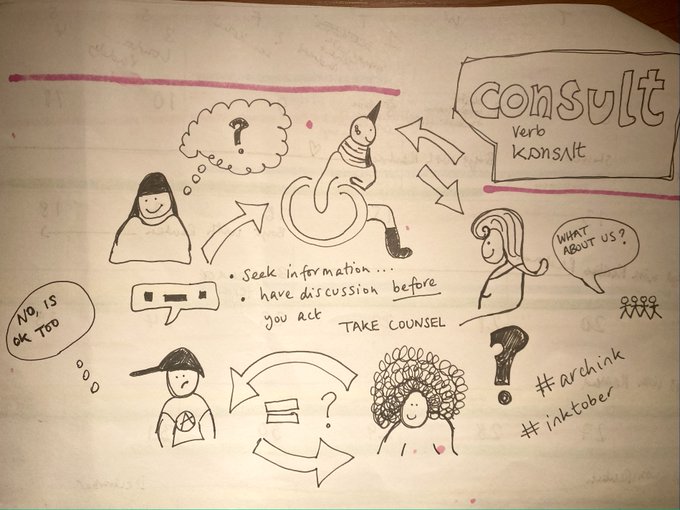 consult
verb
kɒnsʌlt
?
WHAT
ABOUT US?
• seek information...
• have discussion before
you act
TAKE COUNSEL
NO, IS
OK TOO
A
= ?
?
#archink
#inktober